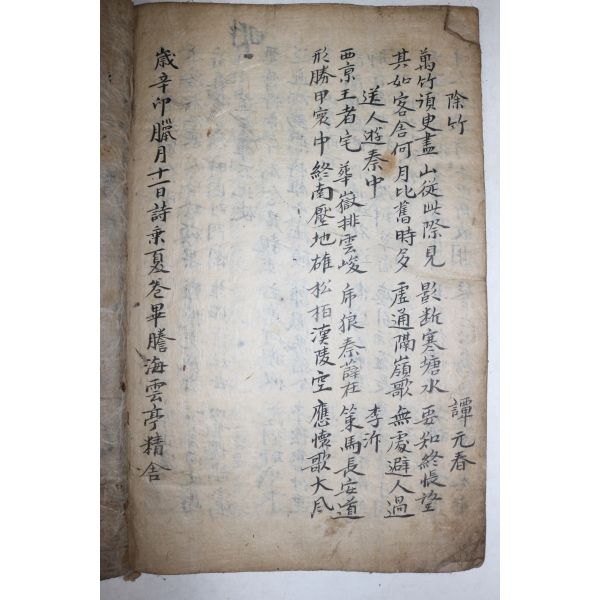 除竹 譚元春
萬竹須更盡 山從此際見 影斷寒塘水 要知終悵望
其如客舍何 月比舊時多 虛通隔嶺歌 無處避人過
送人遊秦中 李沂
西京王者宅 華嶽排雲峻 帝狼秦薛在 策馬長安道
形勝甲寰中 終南壓地雄 松柏漢陵空 應懷歌大風
歲辛卯臘月十一日詩乘夏卷畢謄海雲亭精舍